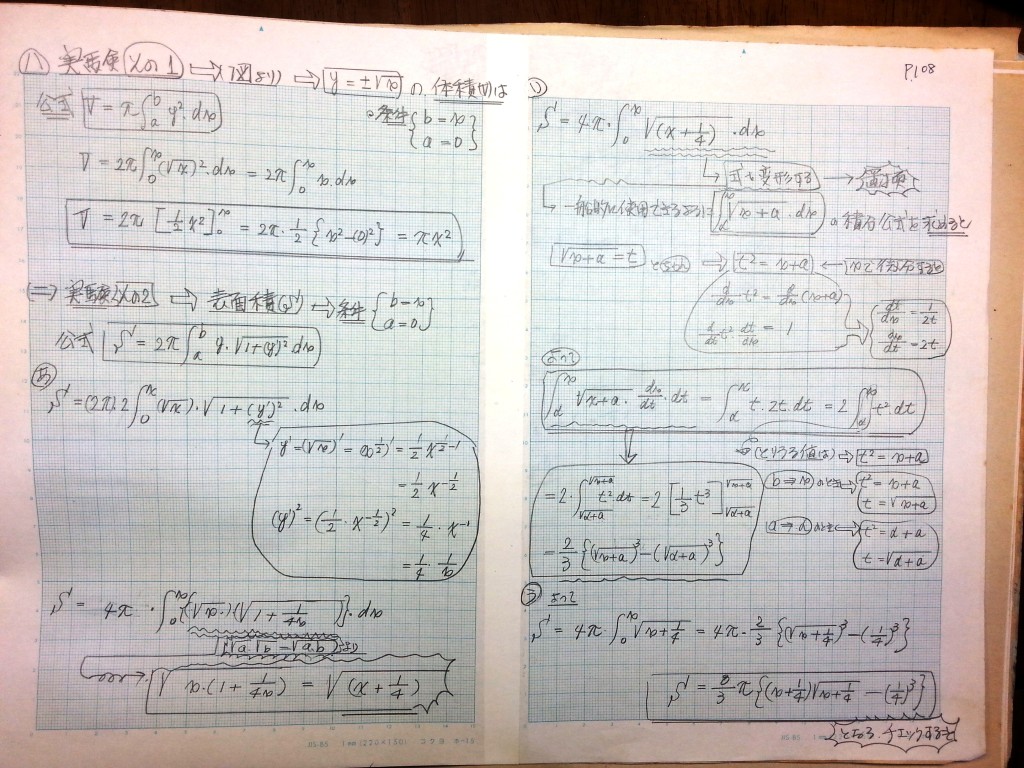 (八) 実画像 その1 ⇒ (図より) ⇒ y=±√x の、体積(V)は
公式 V=π∫_a^b y².dx 。条件 { b=x a=0 }
V=2π∫_0^x (√x)².dx = 2π∫_0^x x.dx
V=2π[½x²]_0^x = 2π·½{x²-(0)²} = πx²
(二) その2 ⇒ 表面積(S) ⇒ 条件 { b=x a=0 }
公式 S=2π∫_a^b y.√1+(y')².dx
あ
S=(2π)2∫_0^x (√x)·√1+(y')².dx
y'=(√x)'=(x^½)'=½x^(½-1)
=½x^(-½)
(y')²=(½·x^(-½))²=¼·x^(-1)
=¼·1/x
S=4π·∫_0^x {(√x)·(√1+1/4x)}.dx
[√a.√b=√a.b]より
√x·(1+1/4x) = √(x+¼)
P108
い
S=4π·∫_0^x √(x+¼).dx
式を変形する →
一般的に使用できる ∫_α^x √x+a.dx の積分公式を求めると
√x+a=t ⇒ t²=x+a ← xで微分すると
d/dx t²=d/dx(x+a)
d/dt t²·dt/dx=1
dt/dx=1/2t
dx/dt=2t
よって
∫_α^x √x+a·dx/dt·dt=∫_α^x t.2t.dt=2∫_α^x t².dt
(とりうる値は)⇒ t²=x+a
=2·∫_√α+a^√x+a t².dt=2[⅓t³]_√α+a^√x+a
b⇒x のとき t²=x+a
t=√x+a
=⅔{(√x+a)³-(√α+a)³}
a⇒α のとき t²=α+a
t=√α+a
う よって
S=4π·∫_0^x √x+¼=4π·⅔{(√x+¼)³-(√¼)³}
S=8/3π{(x+¼)√x+¼-(√¼)³}
となる、チェックすると